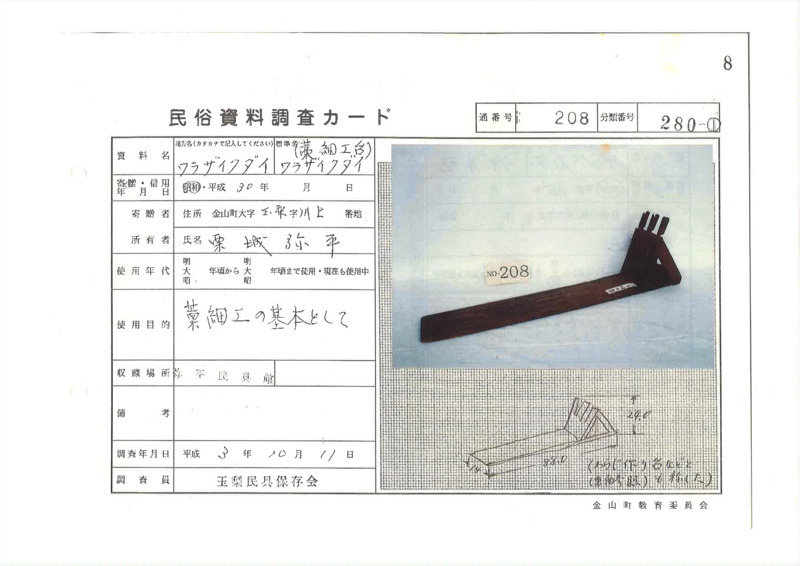 8
民俗資料調査カード
通番号 208 分類番号 280-①
資料名 地方名(カタカナで記入してください) ワラザイクダイ 標準名 (藁細工台) ワラザイクダイ
寄贈・借用年月日 昭和・平成 30年 月 日
寄贈者 住所 金山町大字玉梨字川上 番地
所有者 氏名 栗城弥平
使用年代 明大昭 年頃から 明大昭 年頃まで使用・現在も使用中
使用目的 藁細工の基本として
収蔵場所 弥平民具館
備考
調査年月日 平成 3年 10月 11日
調査員 玉梨民具保存会
NO.208
24.0
88.0
14
(わらじ作り台などと
も称した)
金山町教育委員会